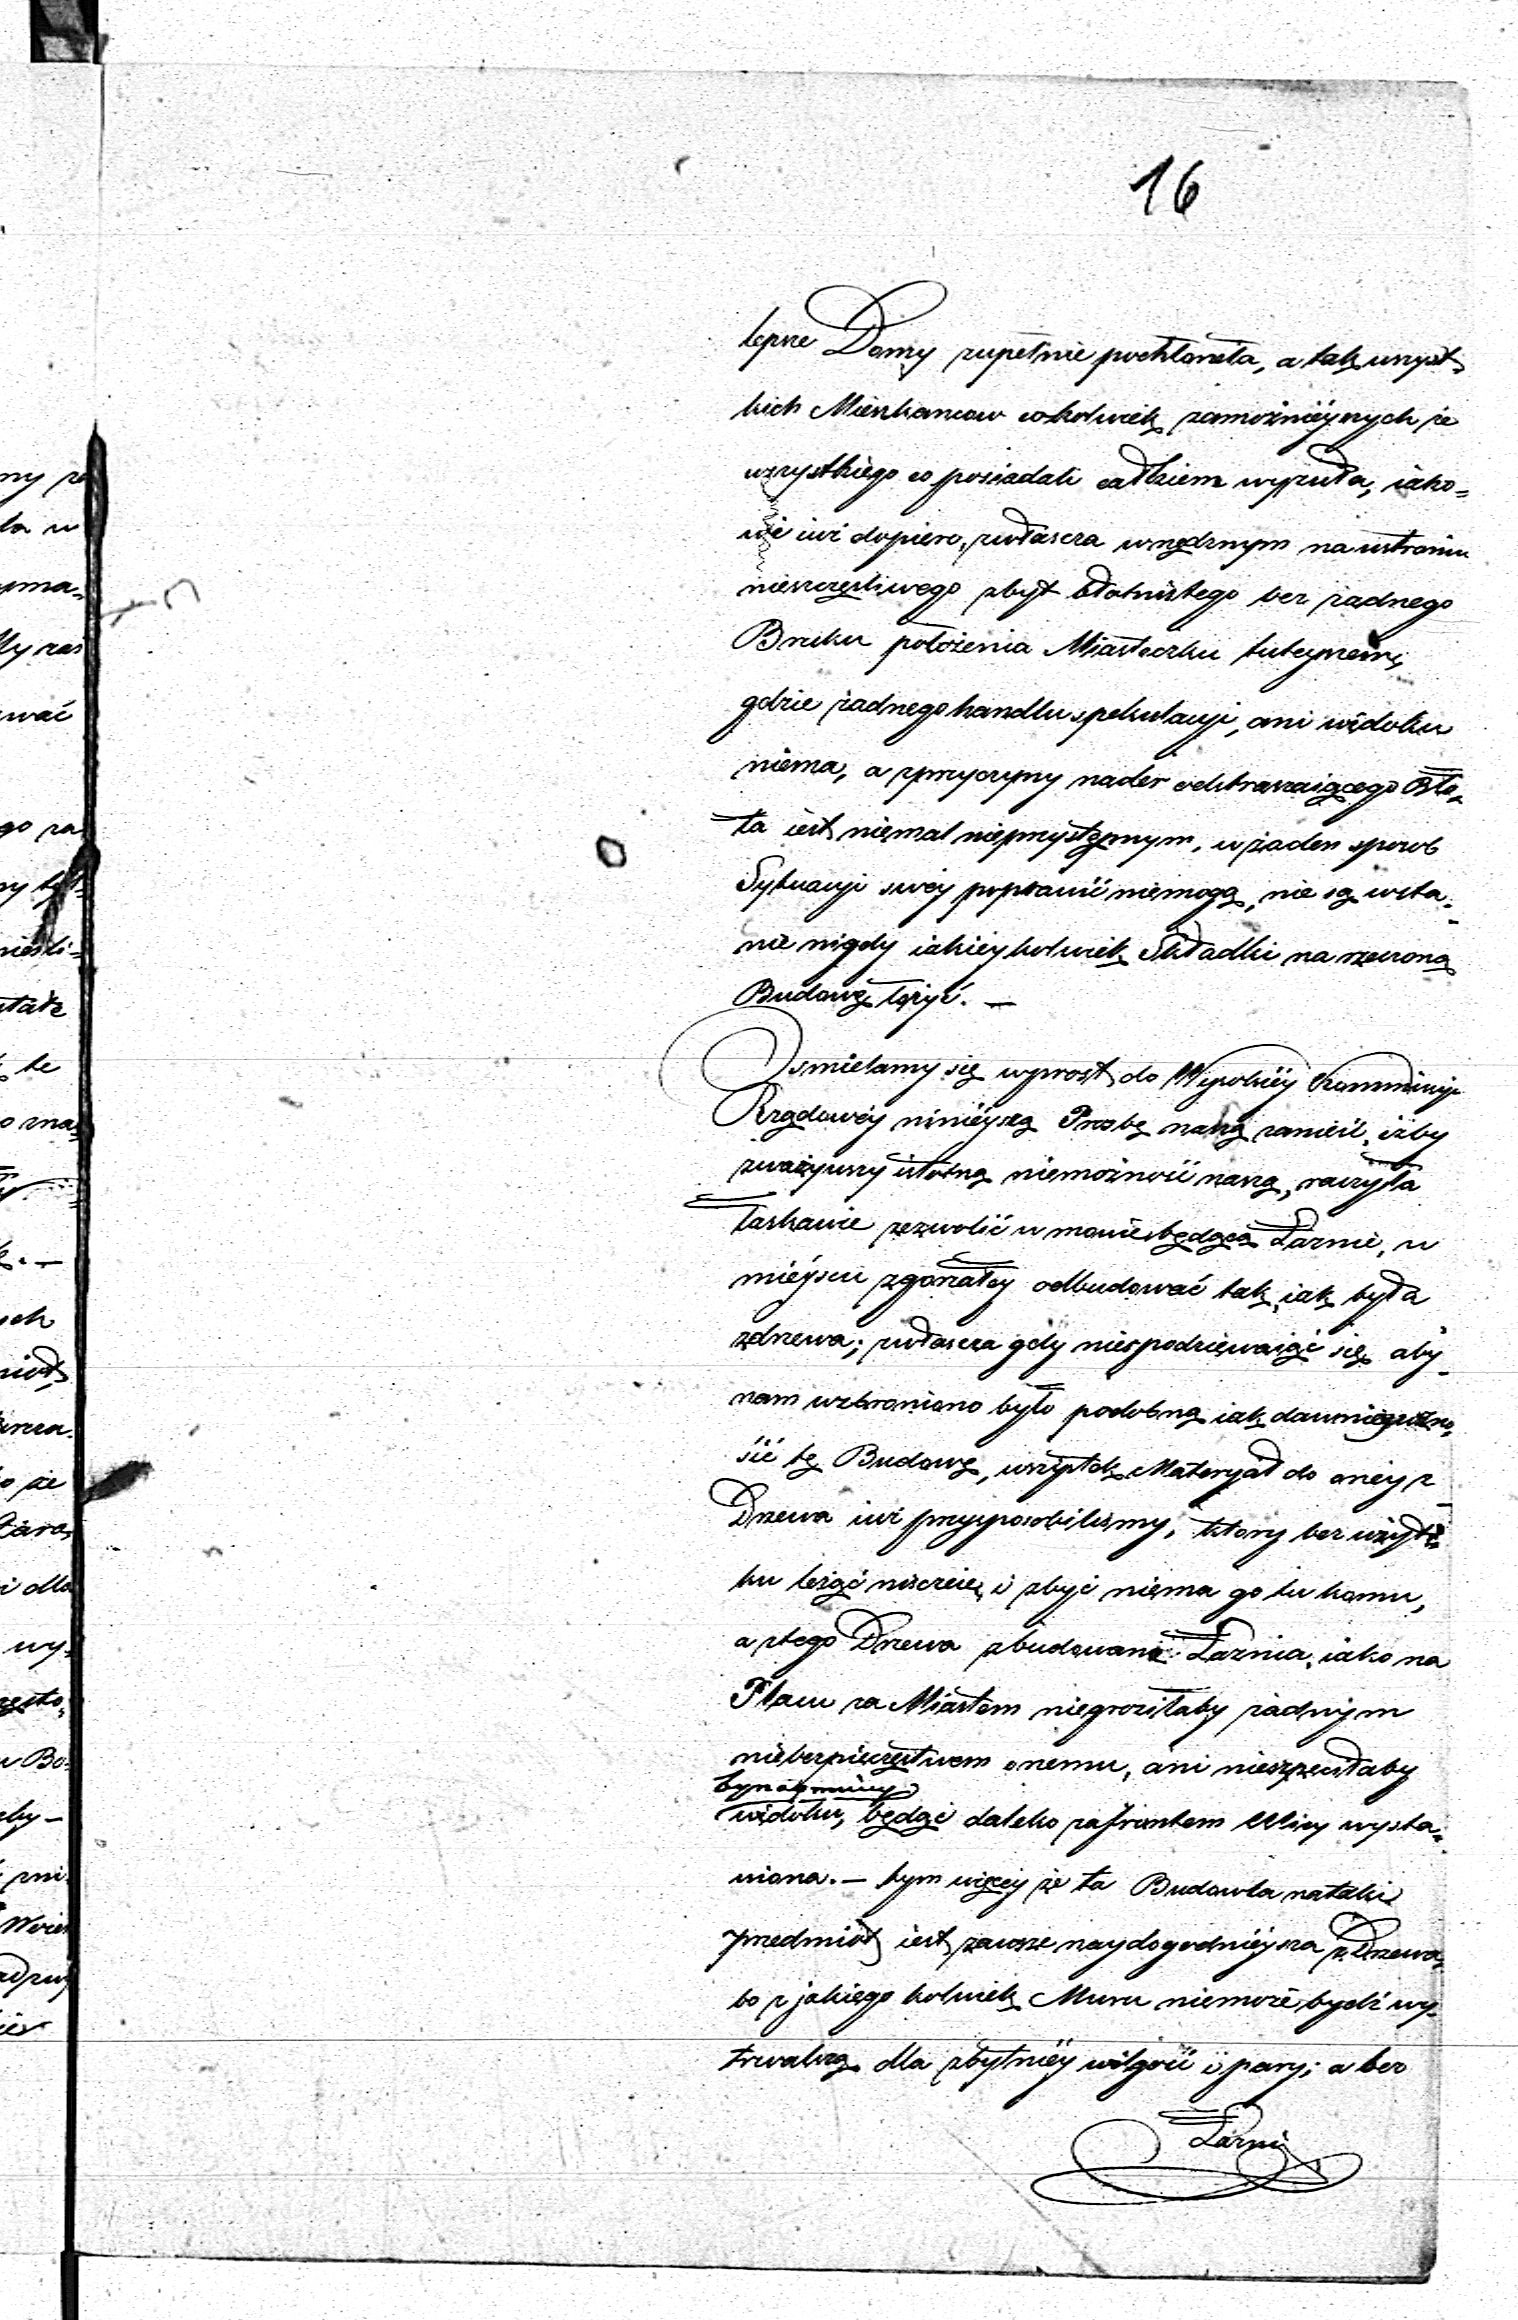 16
lepsze Domy zupełnie pochłoneła, a tak wszyst-
kich Mieszkancow cokolwiek zamożnieyszych ze
wszystkiego co posiadali całkiem wyzuła, iako-
wi iuż dopiero, zwłaszcza w nędznym na ustroniu
nieszczęśliwego zbyt błotnistego bez żadnego
Bruku położenia Miasteczku tuteyszem,
gdzie żadnego handlu spekulacyi, ani widoku
niema, a z przyczyny nader odstraszaiącego Bło-
ta iest niemal nieprzystępnym, w żaden sposob
Sytuacyi swéy poprawić niemogą, nie są w sta-
nie nigdy iakieykolwiek Składki na rzeczoną
Budowę łożyć. —
Osmielamy się wprost do Wysokiéy Kommissyi
Rządowéy ninieyszą Prosbę naszą zanieść, iżby
zważywszy istotną niemożność naszą, raczyła
łaskawie zezwolić w mowie będącą Łaznię, w
mieyscu zgorzałey odbudować tak, iak była
z drzewa; zwłaszcza gdy niespodziewaiąc się aby
nam wzbroniono było podobną iak dawniey wzno-
sić tę Budowę, wszystek Materyał do oney z
Drzewa iuż przysposobilismy, ktory bez użyt-
ku leżąc niszczeie, i zbyć niema go tu komu,
a z tego Drzewa zbudowana Łaznia, iako na
Placu za Miastem niegroziłaby żadnym
niebezpieczęstwem onemu, ani nieszpeciłaby
bynaymniey
widoku, będąc daleko za frontem Ulicy wysta-
wiona. — tym więcey że ta Budowla na taki
przedmiot iest zawsze naydogodnieysza z Drzewa,
bo z jakiego kolwiek Muru niemoże bydź wy-
trwalszą dla zbytniéy wilgoci i pary; a bez
Łazni